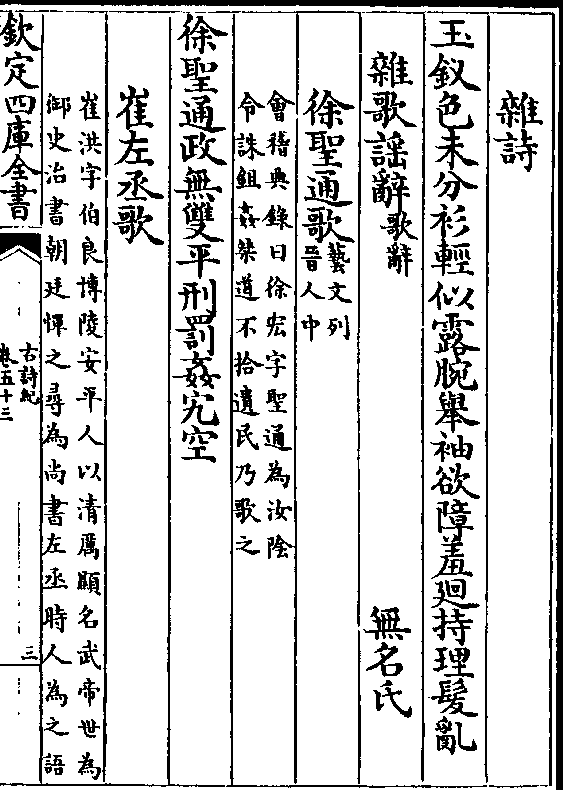 雜詩
玉釵色未分衫輕似露腕舉袖欲障羞迴持理髮亂
雜歌謡辭歌辭 無名氏
徐聖通歌藝文列晉人中
會稽典錄曰徐宏字聖通為汝陰
令誅鉏姦桀道不拾遺民乃歌之
徐聖通政無雙平刑罰姦宄空
崔左丞歌
崔洪字伯良博陵安平人以清厲顯名武帝世為
御史治書朝廷憚之尋為尚書左丞時人為之語
欽定四庫全書
古詩紀
卷五十三
三